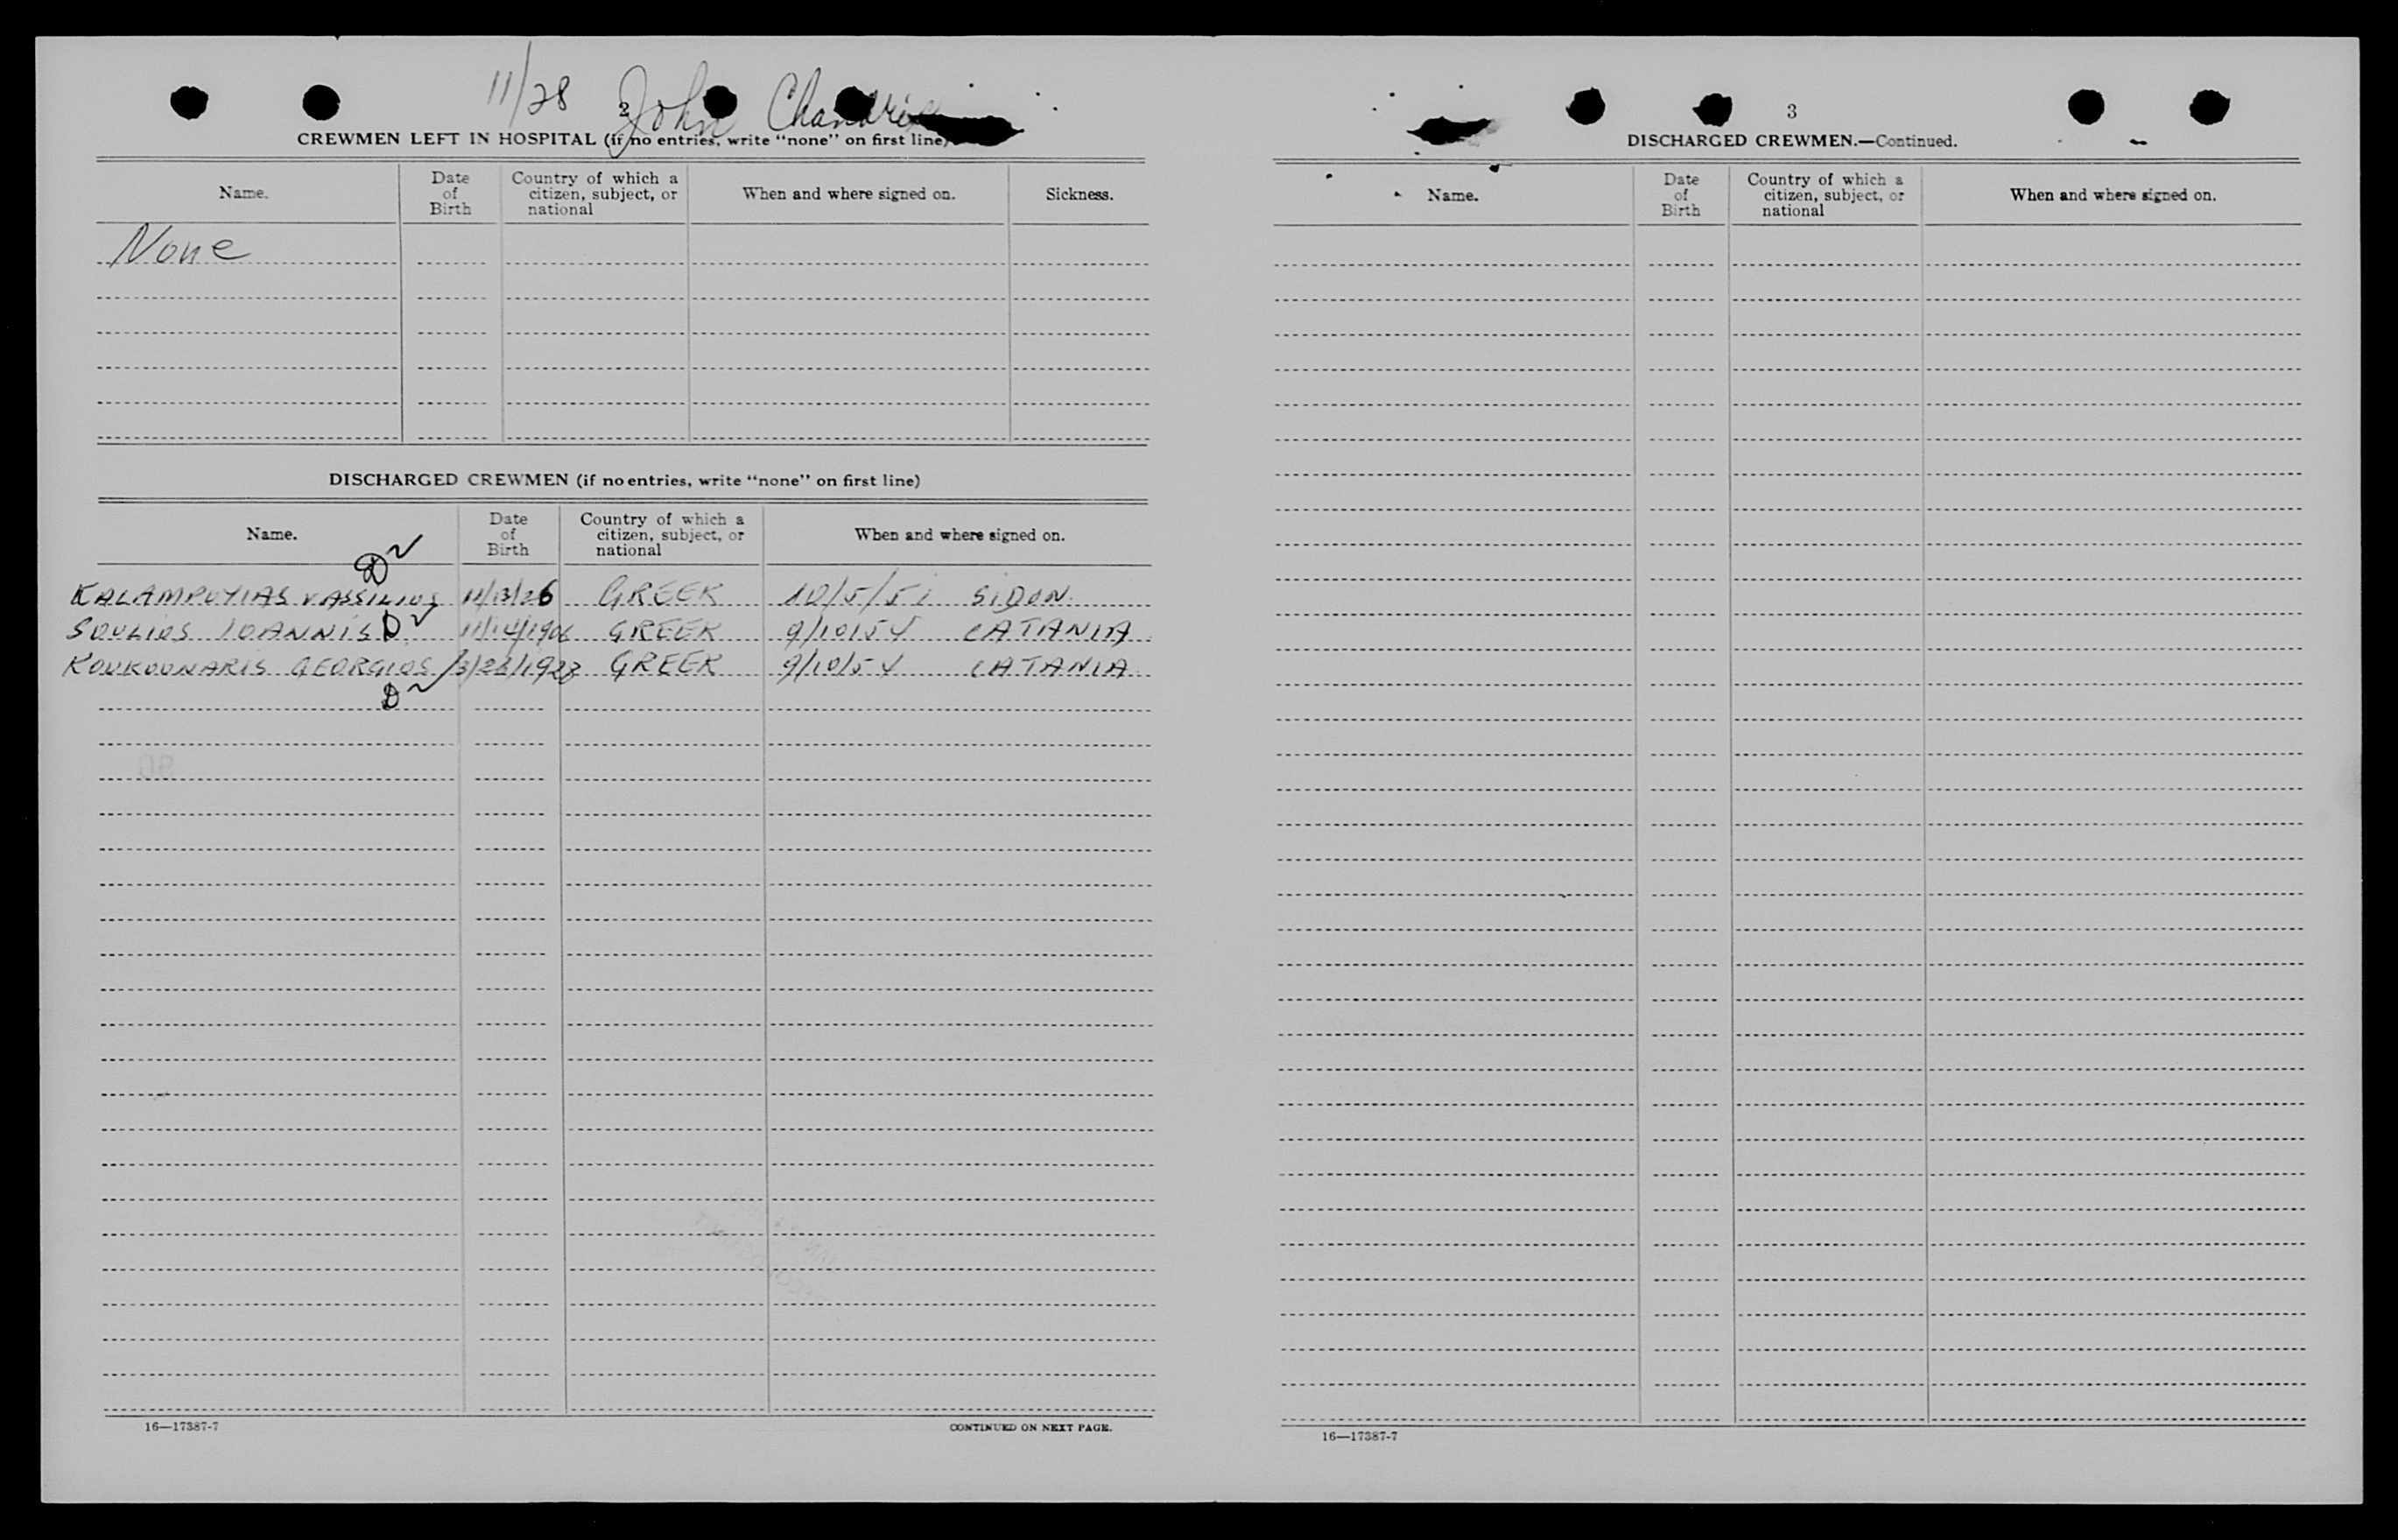 11/28 John Chandris
2
CREWMEN LEFT IN HOSPITAL (if no entries, write "none" on first line)
Name. Date of Birth Country of which a citizen, subject, or national When and where signed on. Sickness.
None
DISCHARGED CREWMEN (if no entries, write "none" on first line)
Name. Date of Birth Country of which a citizen, subject, or national When and where signed on.
D
KALAMPOYIAS VASSILIOS 11/13/26 GREEK 10/5/51 SIDON
SOULIOS IOANNIS D 11/14/1906 GREEK 9/10/54 CATANIA
KOUKOUNARIS GEORGIOS GREEK 9/10/54 CATANIA
D
16—17387-7 CONTINUED ON NEXT PAGE.
3
DISCHARGED CREWMEN.—Continued.
Name. Date of Birth Country of which a citizen, subject, or national When and where signed on.
16—17387-7